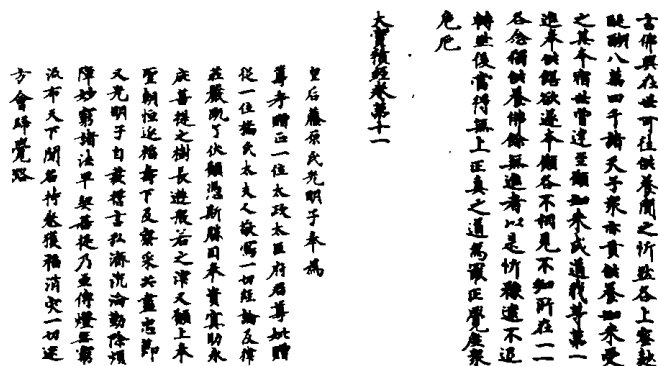 古佛興在世可往供養聞之忻豫各上寶
醍醐八萬四千諸天子眾亦貢供養如來受
之其本宿世嘗逢至願如來成道我等第一
進奉供饌欲遂本願各不相見不知所在一一
各念獨供養佛餘無進者以是忻豫逮不退
轉世後當得無上正真之道為最正覺度眾
危厄
大寶積經卷第十一
皇后藤原氏光明子奉為
尊考贈正一位太政太臣府君尊妣贈
從一位橘氏太夫人敬寫一切經論及律
莊嚴既了伏願憑斯勝因奉資冥助永
庇菩提之樹長遊般若之津又願上奉
聖朝恒延福壽下及寮采共盡忠節
又光明子自發誓言弘濟沉淪勤除煩
障妙窮諸法早契菩提乃至傳燈無窮
流布天下聞名持卷獲福消災一切迷
方會歸覺路